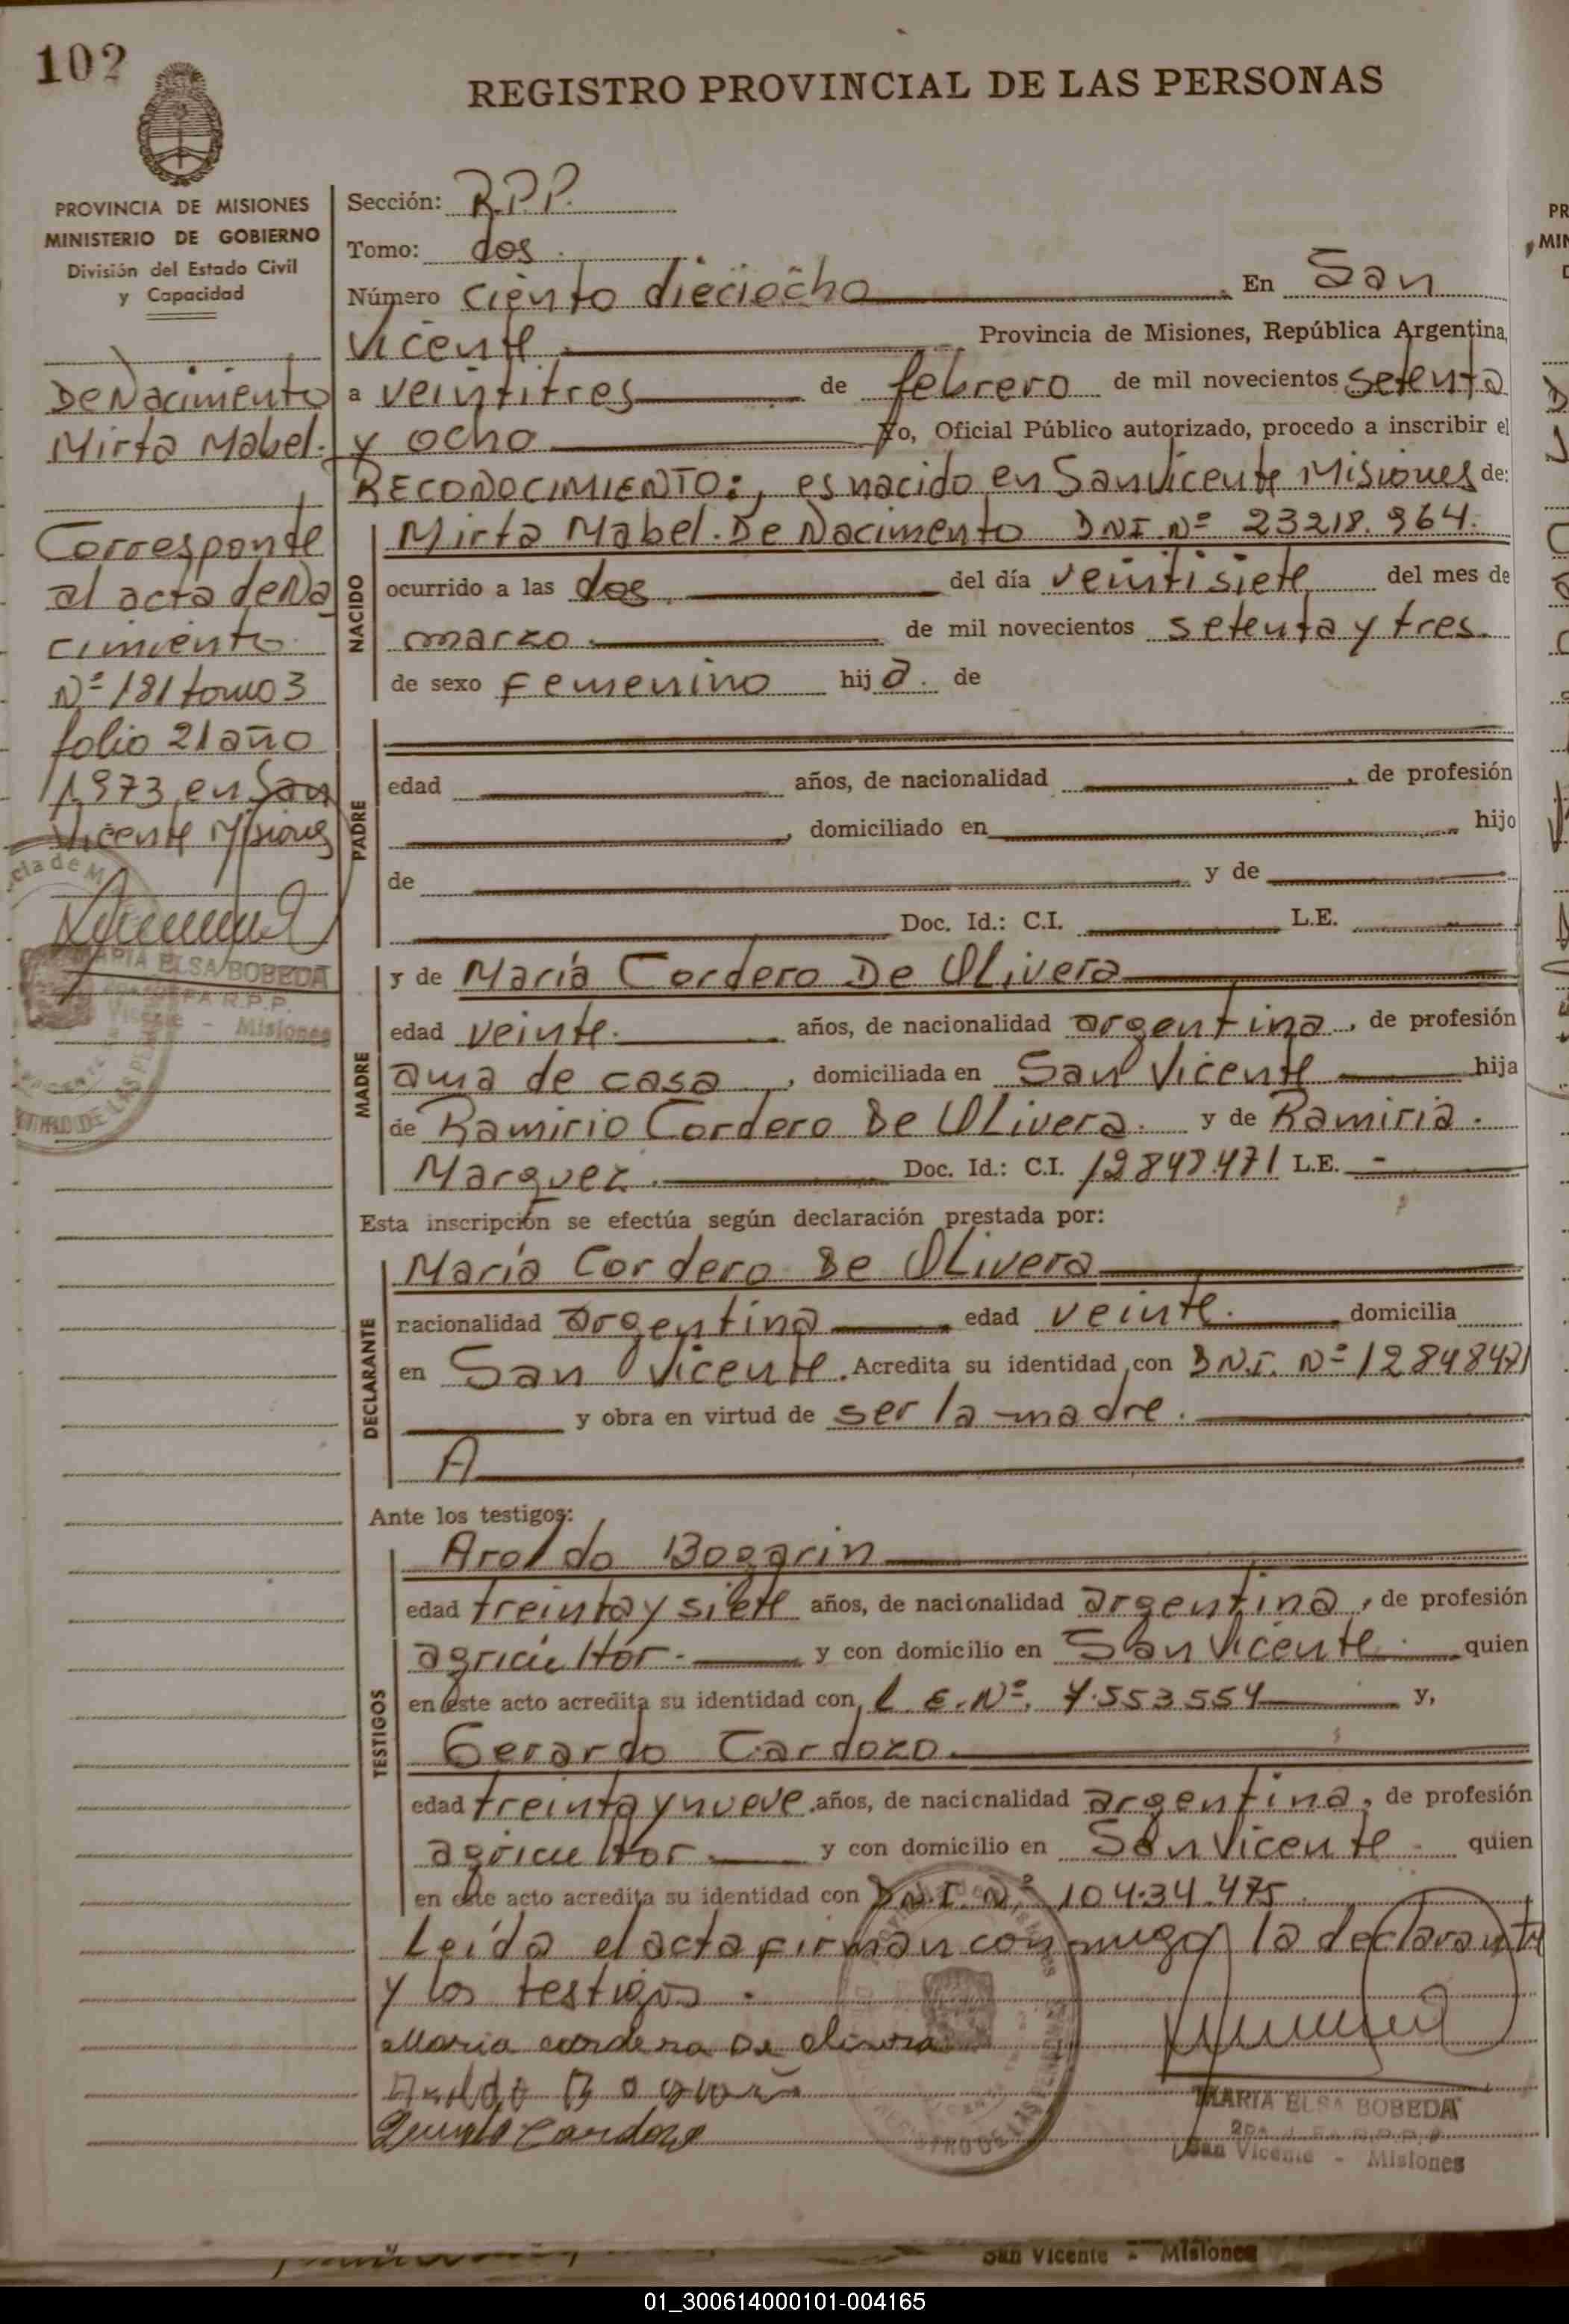 102
REGISTRO PROVINCIAL DE LAS PERSONAS
PROVINCIA DE MISIONES
MINISTERIO DE GOBIERNO
División del Estado Civil
y Capacidad
De Nacimiento
Mirta Mabel.
Corresponde
al acta de Na
cimiento
Nº 181 tomo 3
folio 21 año
1973 en San
Vicente Misiones
MARIA ELSA BOBEDA
R.P.P.
Vicente - Misiones
Sección: R.P.P.
Tomo: dos.
Número ciento dieciocho. En San
Vicente. Provincia de Misiones, República Argentina,
a veintitres de febrero de mil novecientos setenta
y ocho Yo, Oficial Público autorizado, procedo a inscribir el
RECONOCIMIENTO:, es nacido en San Vicente Misiones de:
NACIDO
Mirta Mabel. De Nacimento DNI. Nº 23218.964.
ocurrido a las dos. del día veintisiete del mes de
marzo. de mil novecientos setenta y tres.
de sexo femenino hija. de
PADRE
edad años, de nacionalidad , de profesión
, domiciliado en hijo
de y de
Doc. Id.: C.I. L.E.
MADRE
y de María Cordero De Olivera
edad veinte. años, de nacionalidad argentina, de profesión
ama de casa, domiciliada en San Vicente hija
de Ramirio Cordero De Olivera. y de Ramiria.
Marquez. Doc. Id.: C.I. 12848.471 L.E. -
Esta inscripción se efectúa según declaración prestada por:
DECLARANTE
María Cordero De Olivera
nacionalidad argentina edad veinte. domicilia
en San Vicente. Acredita su identidad con D.N.I. Nº 12848471
y obra en virtud de ser la madre.
A
Ante los testigos:
TESTIGOS
Aroldo Bogarin
edad treinta y siete años, de nacionalidad argentina, de profesión
agricultor. y con domicilio en San Vicente. quien
en este acto acredita su identidad con L.E. Nº. 7.553554 y,
Gerardo Cardozo.
edad treinta y nueve. años, de nacionalidad argentina, de profesión
agricultor. y con domicilio en San Vicente. quien
en este acto acredita su identidad con D.N.I. Nº 104.34.475.
Leída el acta firman conmigo la declarante
y los testigos.
Maria cordero De olivera
Cardozo
MARIA ELSA BOBEDA
San Vicente - Misiones
San Vicente - Misiones
01_300614000101-004165